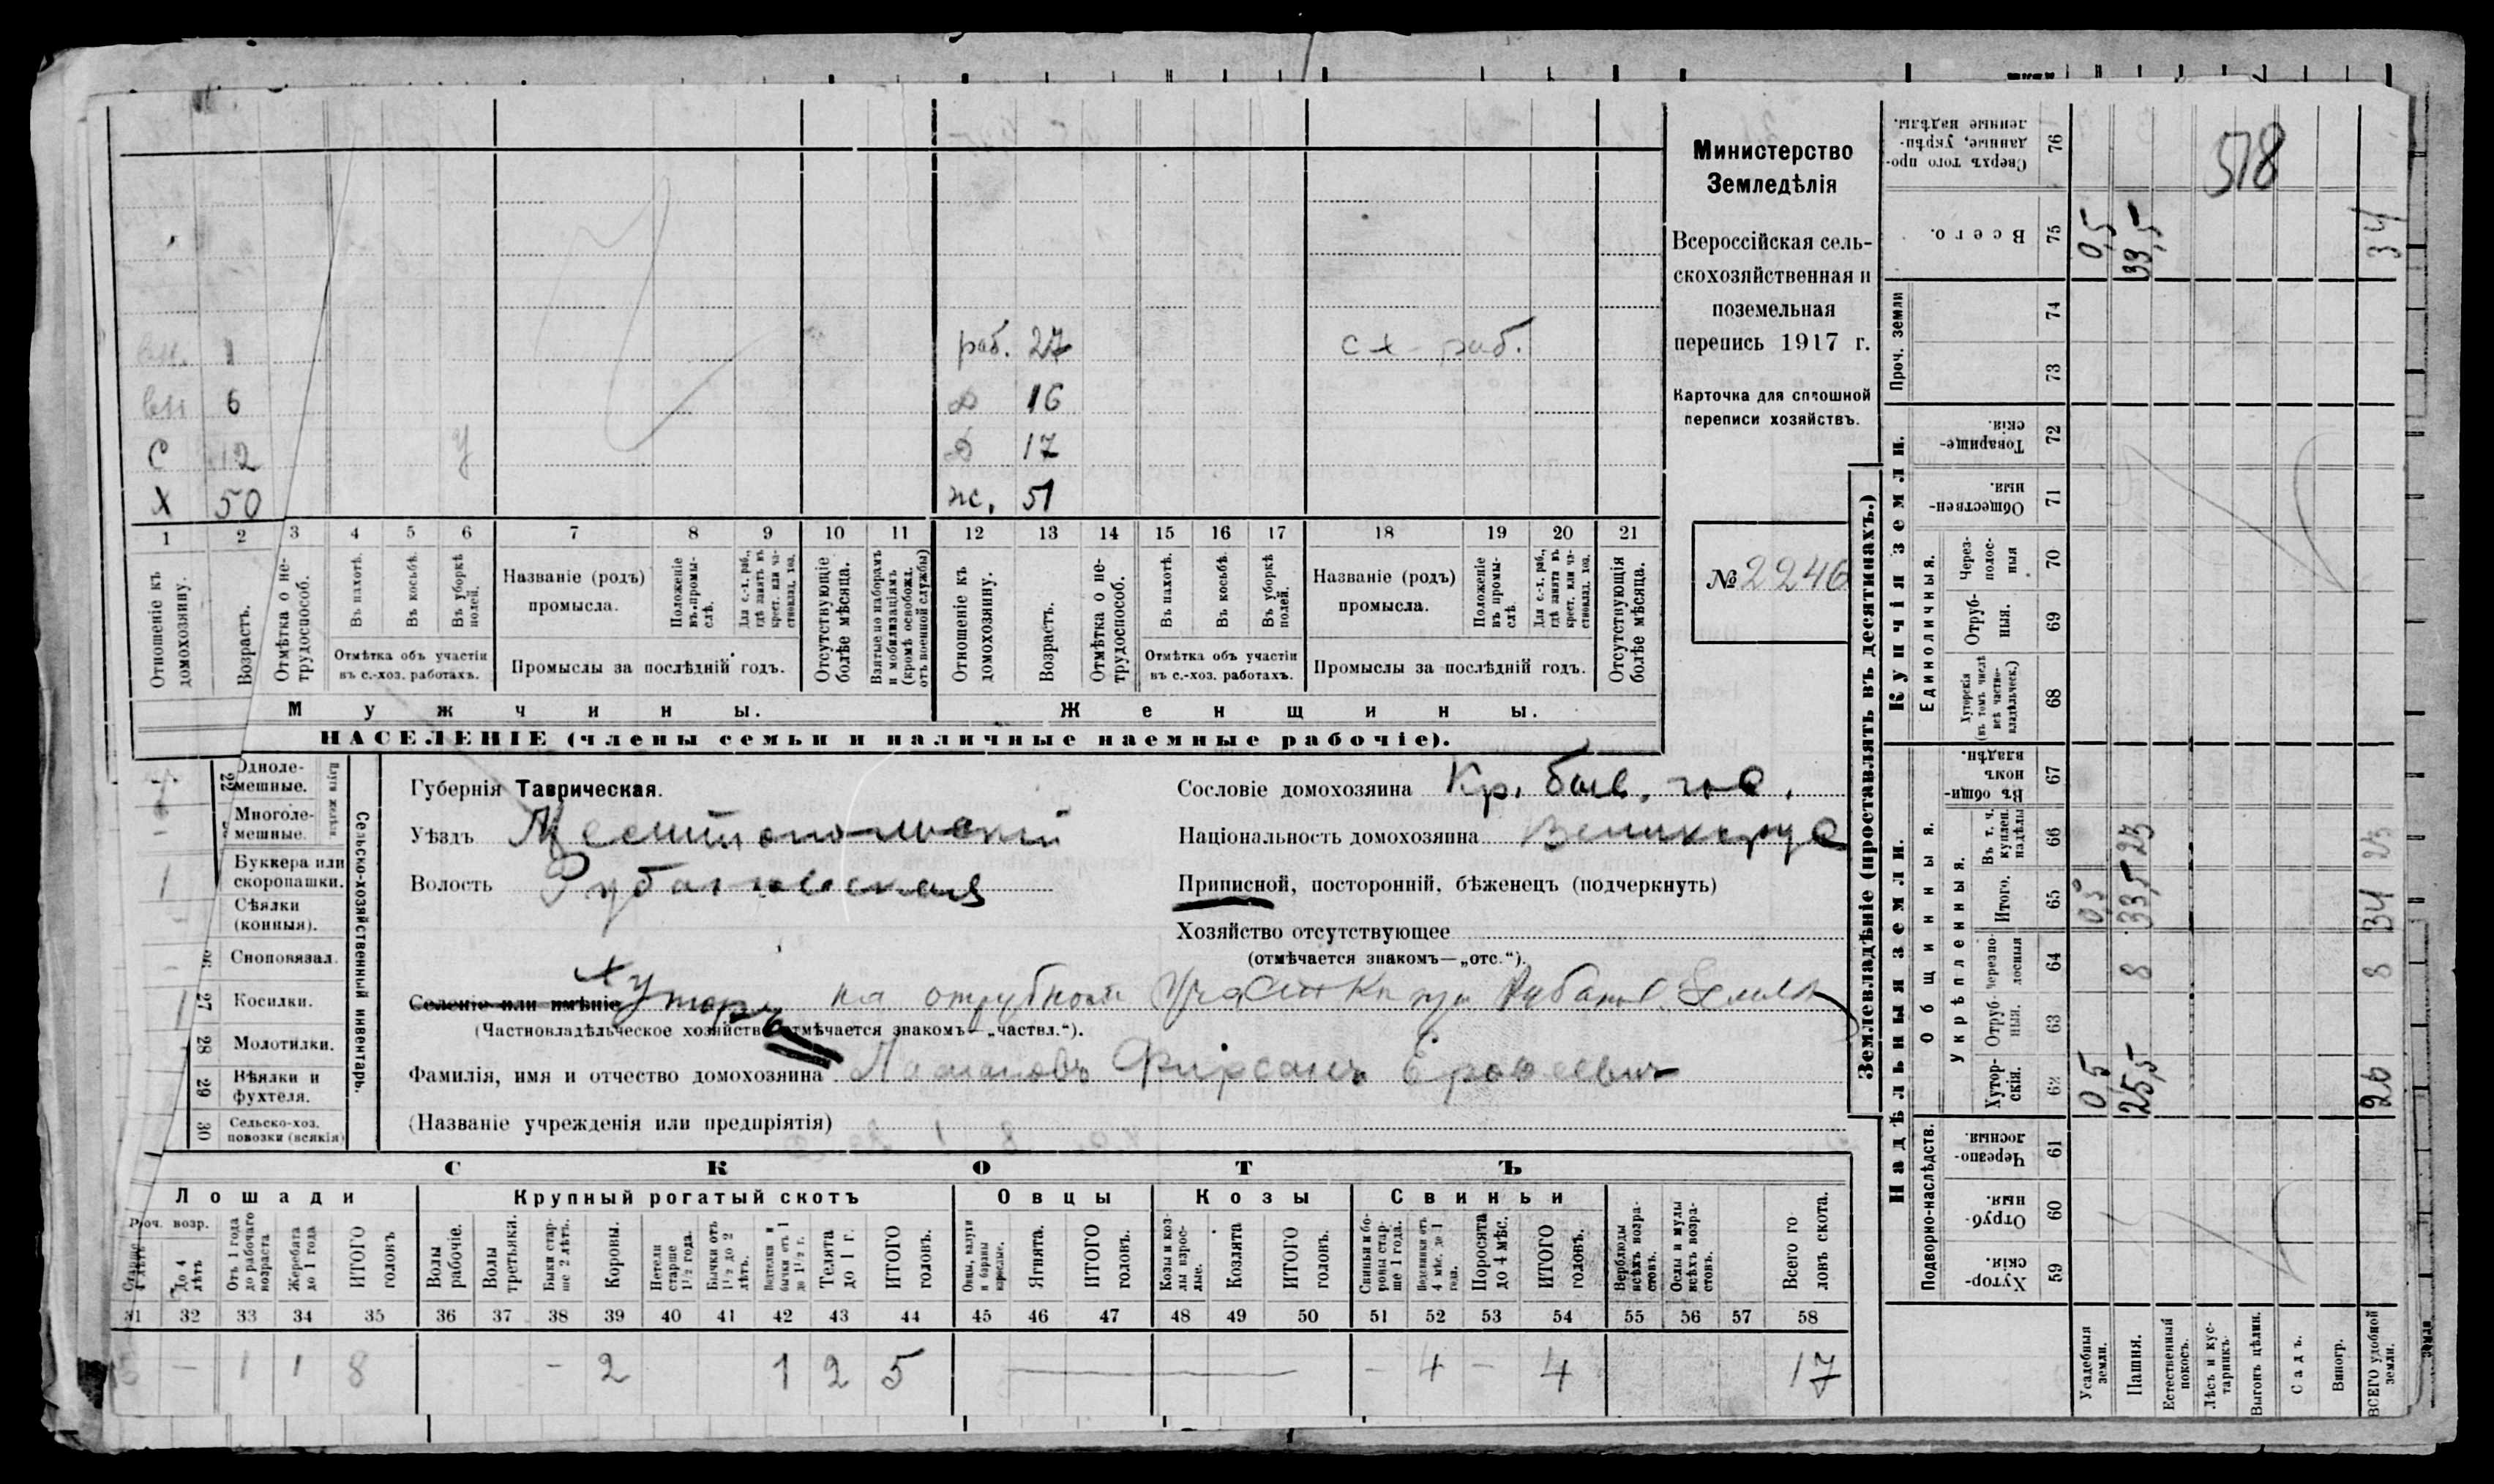 Министерство
Земледѣлія
Всероссійская сель-
скохозяйственная и
поземельная
перепись 1917 г.
Карточка для сплошной
переписи хозяйствъ.
№ 2246
518
вн. 1
вн 6
С 12 У
Х 50
раб. 27 с х раб.
Д 16
Д 17
ж. 51
1 2 3 4 5 6 7 8 9 10 11 12 13 14 15 16 17 18 19 20 21
Отношеніе къ домохозяину.
Возрастъ.
Отмѣтка о не-трудоспособ.
Въ пахотѣ.
Въ косьбѣ.
Въ уборкѣ полей.
Отмѣтка объ участіи
въ с.-хоз. работахъ.
Названіе (родъ)
промысла.
Положеніе въ промы-слѣ.
Для с.-х. раб., гдѣ занятъ въ крест. или ча-стновлад. хоз.
Промыслы за послѣдній годъ.
Отсутствующіе болѣе мѣсяца.
Взятые по наборамъ и мобилизаціямъ (кромѣ освобожд. отъ военной службы)
Отношеніе къ домохозяину.
Возрастъ.
Отмѣтка о не-трудоспособ.
Въ пахотѣ.
Въ косьбѣ.
Въ уборкѣ полей.
Отмѣтка объ участіи
въ с.-хоз. работахъ.
Названіе (родъ)
промысла.
Положеніе въ промы-слѣ.
Для с.-х. раб., гдѣ занятъ въ крест. или ча-стновлад. хоз.
Промыслы за послѣдній годъ.
Отсутствующія болѣе мѣсяца.
Мужчины.
Женщины.
НАСЕЛЕНІЕ (члены семьи и наличные наемные рабочіе).
Сельско-хозяйственный инвентарь.
Одноле-
мешные.
Многоле-
мешные.
Буккера или
скоропашки. 1
Сѣялки
(конныя).
Сноповязал.
27 Косилки. 1
28 Молотилки.
29 Вѣялки и
фухтеля.
30 Сельско-хоз.
повозки (всякія)
Губернія Таврическая.
Уѣздъ Мелитопольскій
Волость Рубановская
Сословіе домохозяина Кр. быв. гос.
Національность домохозяина Великорус
Приписной, посторонній, бѣженецъ (подчеркнуть)
Хозяйство отсутствующее
(отмѣчается знакомъ—„отс.“).
Селеніе или имѣніе Хуторъ на отрубном участкѣ при Рубанов. земли
(Частновладѣльческое хозяйство отмѣчается знакомъ—„частвл.“).
Фамилія, имя и отчество домохозяина Фирсанъ Ерофеевич
(Названіе учрежденія или предпріятія)
СКОТЪ
Лошади
Крупный рогатый скотъ
Овцы
Козы
Свиньи
Роч. возр.
Старше 4 лѣтъ
До 4 лѣтъ
Отъ 1 года до рабочаго возраста
Жеребята до 1 года
ИТОГО головъ
Волы рабочіе.
Волы третьяки.
Быки стар-ше 2 лѣтъ.
Коровы.
Нетели старше 1½ года.
Бычки отъ 1½ до 2 лѣтъ.
Телятки и бычки отъ 1 до 1½ г.
Телята до 1 г.
ИТОГО головъ.
Овцы, валухи и бараны взрослые.
Ягнята.
ИТОГО головъ.
Козы и коз-лы взрос-лые.
Козлята
ИТОГО головъ.
Свиньи и бо-ровы стар-ше 1 года.
Подсвинки отъ 4 мѣс. до 1 года.
Поросята до 4 мѣс.
ИТОГО головъ.
Верблюды всѣхъ возра-стовъ.
Ослы и мулы всѣхъ возра-стовъ.
Всего го ловъ скота.
31 32 33 34 35 36 37 38 39 40 41 42 43 44 45 46 47 48 49 50 51 52 53 54 55 56 57 58
— 1 1 8 — 2 1 2 5 — — 4 — 4 17
Землевладѣніе (проставлять въ десятинахъ.)
Надѣльныя земли.
Купчія земли.
Проч. земли
Подворно-наслѣдств.
Общинныя.
Укрѣпленныя.
Единоличныя.
Сверхъ того про-данные, укрѣп-ленные надѣлы. 76
Всего. 75 0,5 33,5 34
74
73
Товарище-скія. 72
Обществен-ныя. 71
Через-полос-ныя 70
Отруб-ныя. 69
Хуторскія (въ томъ числѣ всѣ частно-владѣльческ.) 68
Въ общин-номъ владѣн. 67
Въ т. ч. куплен. надѣлы 66 25 25
Итого. 65 05 33,5 34
Черезпо-лосныя 64 8 8
Отруб-ныя. 63
Хутор-скія. 62 0,5 25,5 26
Черезпо-лосныя. 61
Отруб-ныя. 60
Хутор-скія. 59
Усадебныя земли.
Пашня.
Естественный покосъ.
Лѣсъ и кус-тарникъ.
Выгонъ цѣлин.
Садъ.
Виногр.
ВСЕГО удобной земли.